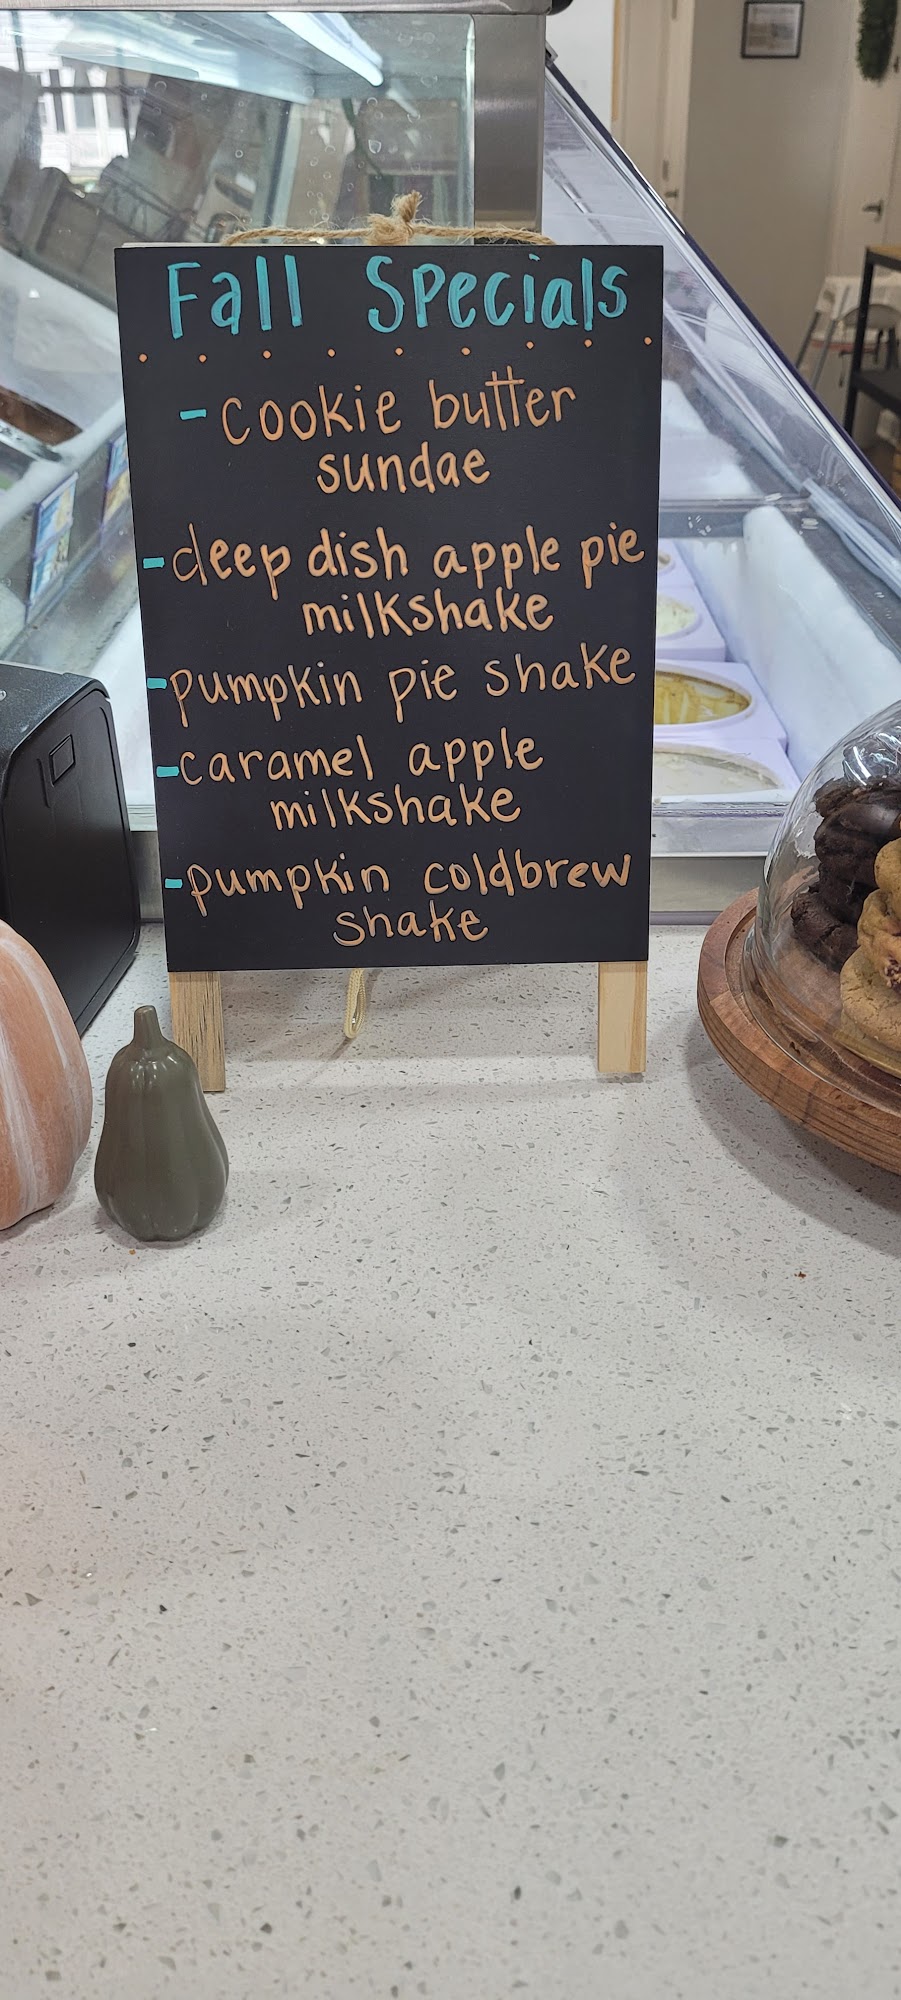 Fall Specials
- Cookie butter
sundae
- deep dish apple pie
milkshake
- pumpkin pie shake
- caramel apple
milkshake
- pumpkin coldbrew
shake